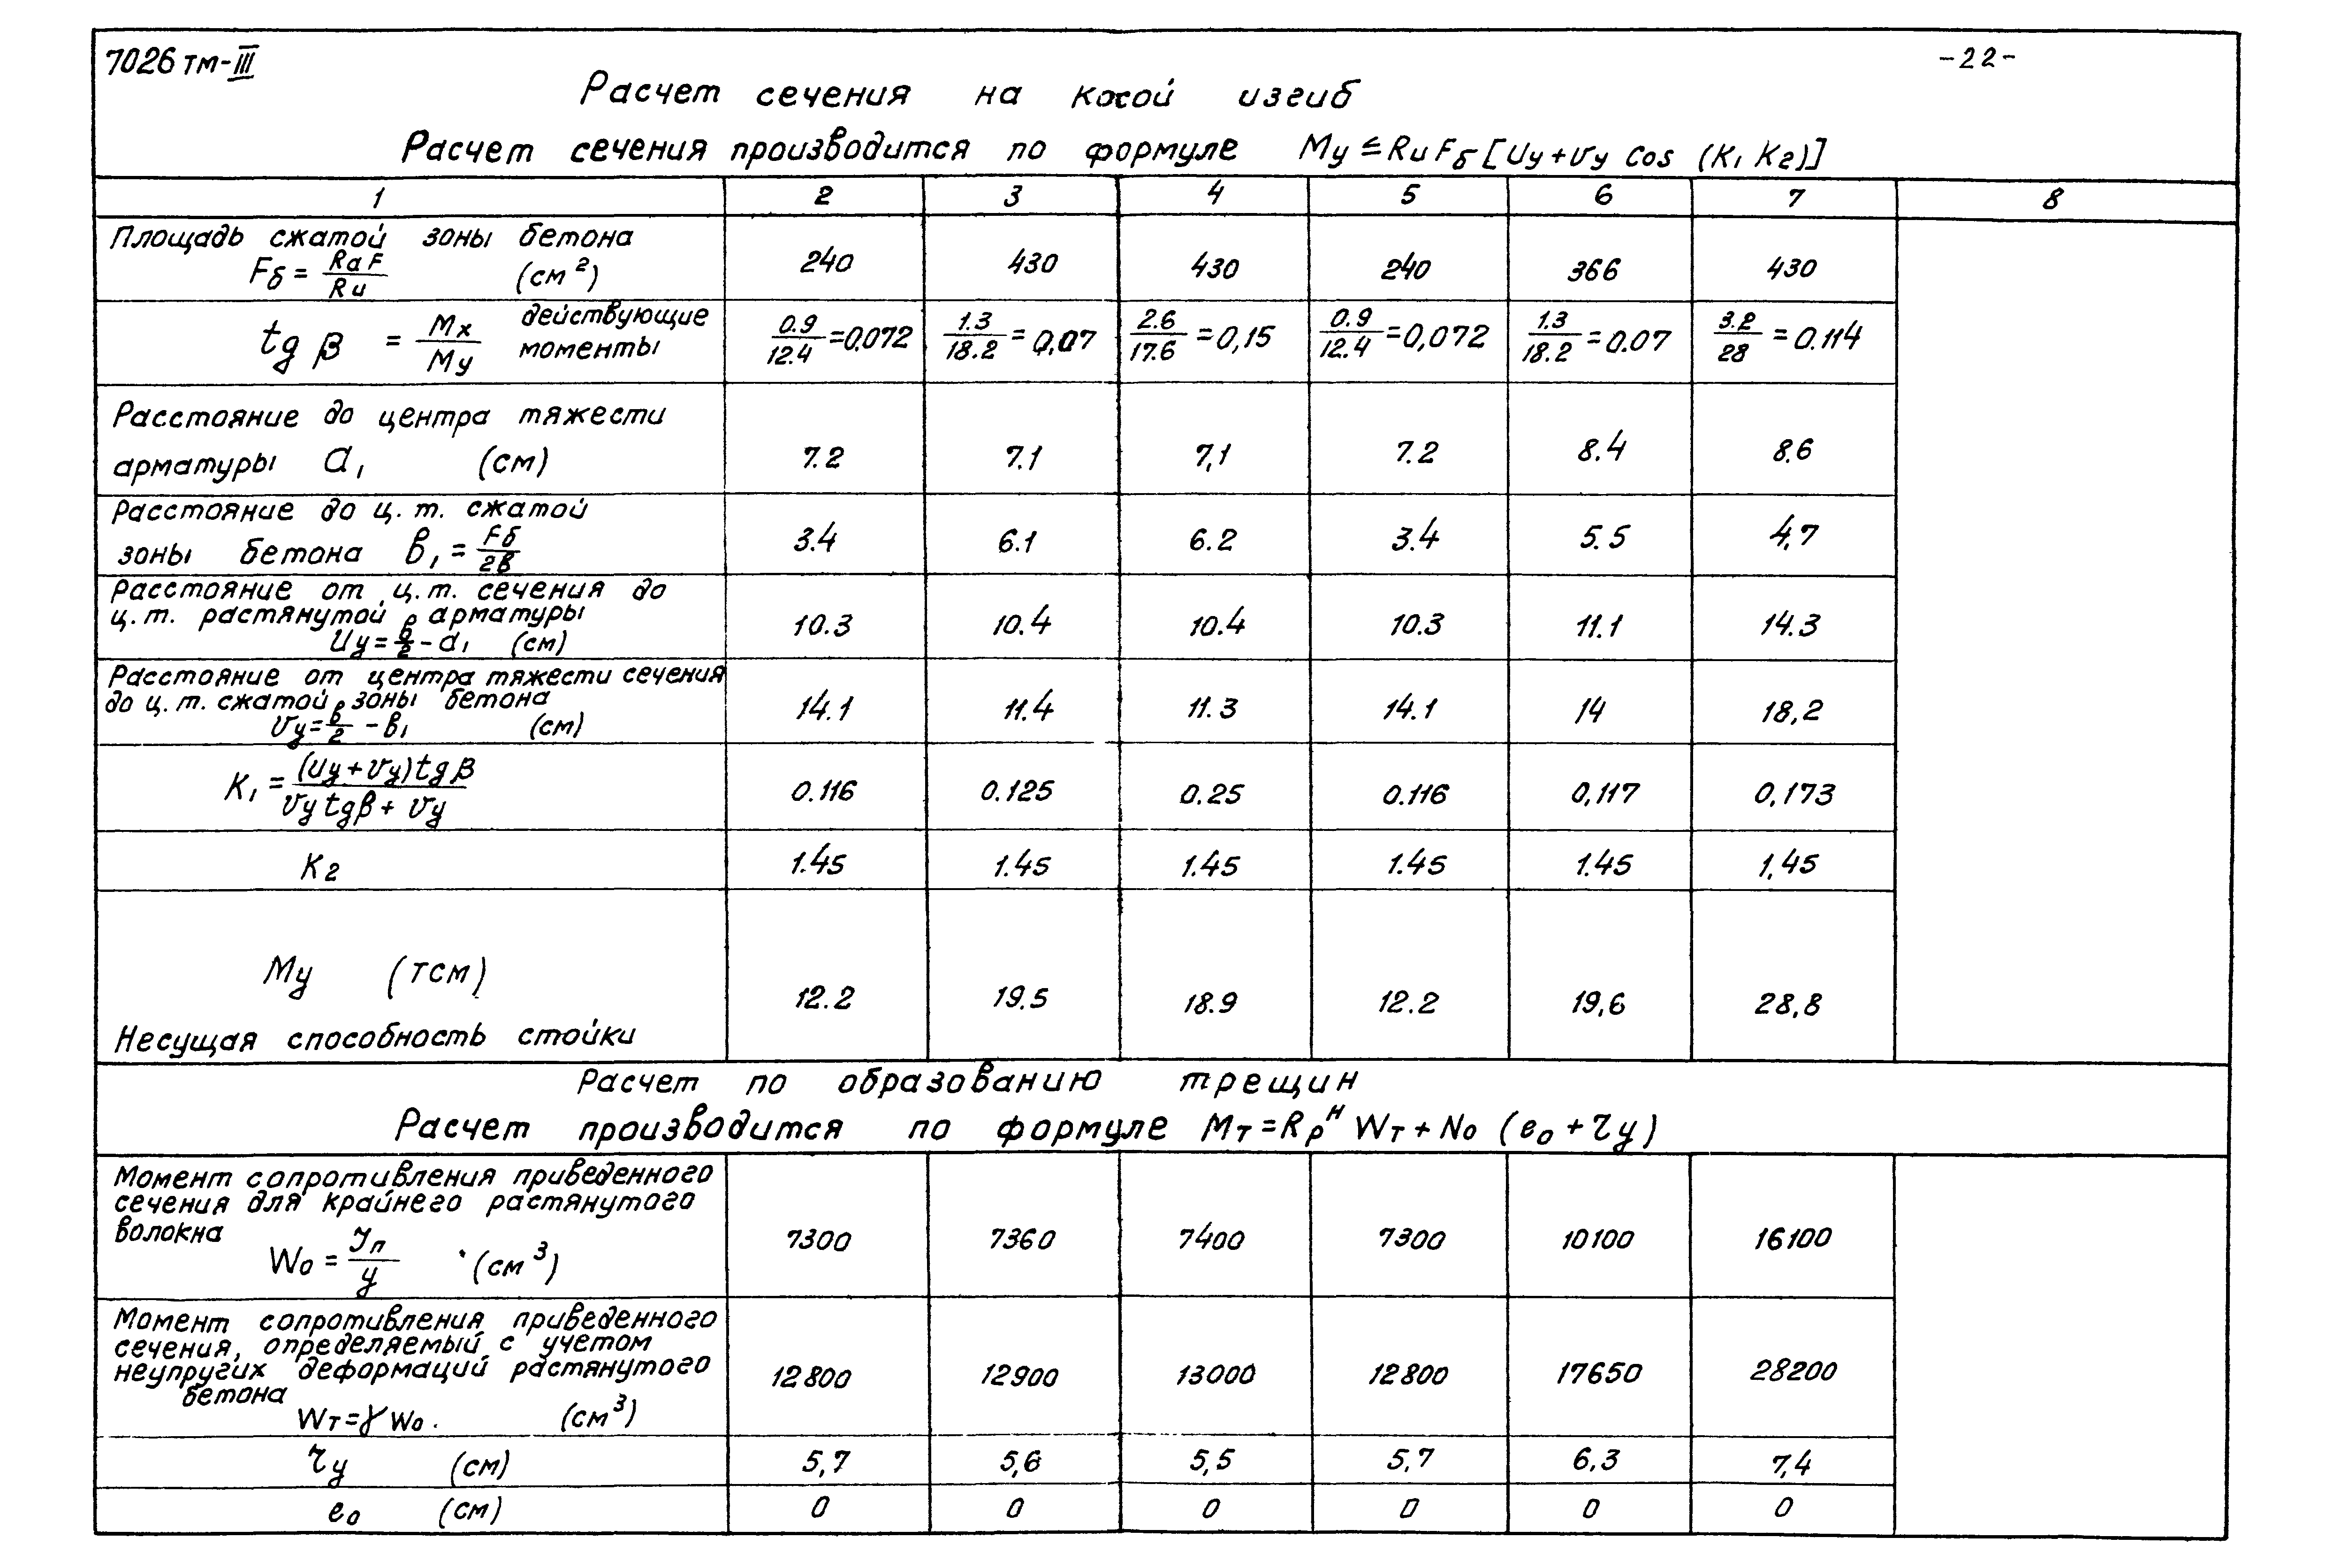 7026 тм-III
-22-
Расчет сечения на косой изгиб
Расчет сечения производится по формуле Mу ≤ Rи Fб [Uу + Vу Cos (K₁ K₂)]
1 2 3 4 5 6 7 8
Площадь сжатой зоны бетона
Fб = Rа F / Rи (см²) 240 430 430 240 366 430
tg β = Mх / Mу действующие моменты 0.9/12.4=0,072 1.3/18.2=0,07 2.6/17.6=0,15 0.9/12.4=0,072 1.3/18.2=0.07 3.2/28=0.114
Расстояние до центра тяжести
арматуры a₁ (см) 7.2 7.1 7,1 7.2 8.4 8.6
Расстояние до ц.т. сжатой
зоны бетона в₁ = Fб / 2в 3.4 6.1 6.2 3.4 5.5 4,7
Расстояние от ц.т. сечения до
ц.т. растянутой арматуры
Uу = в/2 - a₁ (см) 10.3 10.4 10.4 10.3 11.1 14.3
Расстояние от центра тяжести сечения
до ц.т. сжатой зоны бетона
Vу = в/2 - в₁ (см) 14.1 11.4 11.3 14.1 14 18,2
K₁ = (Uу + Vу) tg β / Vу tg β + Vу 0.116 0.125 0.25 0.116 0,117 0,173
K₂ 1.45 1.45 1.45 1.45 1.45 1,45
Mу (тсм) 12.2 19.5 18.9 12.2 19,6 28,8
Несущая способность стойки
Расчет по образованию трещин
Расчет производится по формуле Mт = Rрᴴ Wт + Nо (eо + rу)
Момент сопротивления приведенного
сечения для крайнего растянутого
волокна
Wо = Jп / y (см³) 7300 7360 7400 7300 10100 16100
Момент сопротивления приведенного
сечения, определяемый с учетом
неупругих деформаций растянутого
бетона
Wт = γ Wо. (см³) 12800 12900 13000 12800 17650 28200
rу (см) 5,7 5,6 5,5 5,7 6,3 7,4
eо (см) 0 0 0 0 0 0